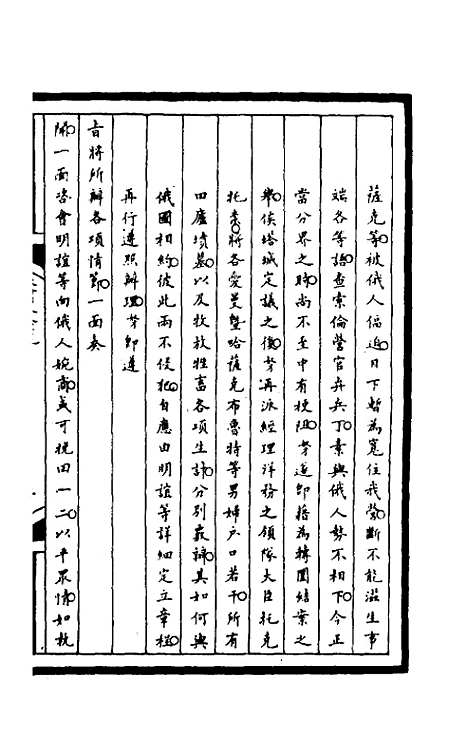 薩克等被俄人偪迫目下暫為寬住我蒙斷不能滋生事
端各等語查索倫營官弁兵丁素與俄人勢不相下今正
當分界之時尚不至中有梗阻等遵即藉為轉圜結案之
舉俟塔城定議之後等再派經理洋務之領隊大臣托克
托奈將各愛曼暨哈薩克布魯特等男婦戶口若干所有
田廬墳墓以及牧放牲畜各項生計分別嚴辦其如何與
俄國相約彼此兩不侵犯自應由明誼等詳細定立章程
再行遵照辦理等即遵
旨將所辦各項情節一面奏
聞一面咨會明誼等向俄人婉商或可挽回一二以平眾情如執